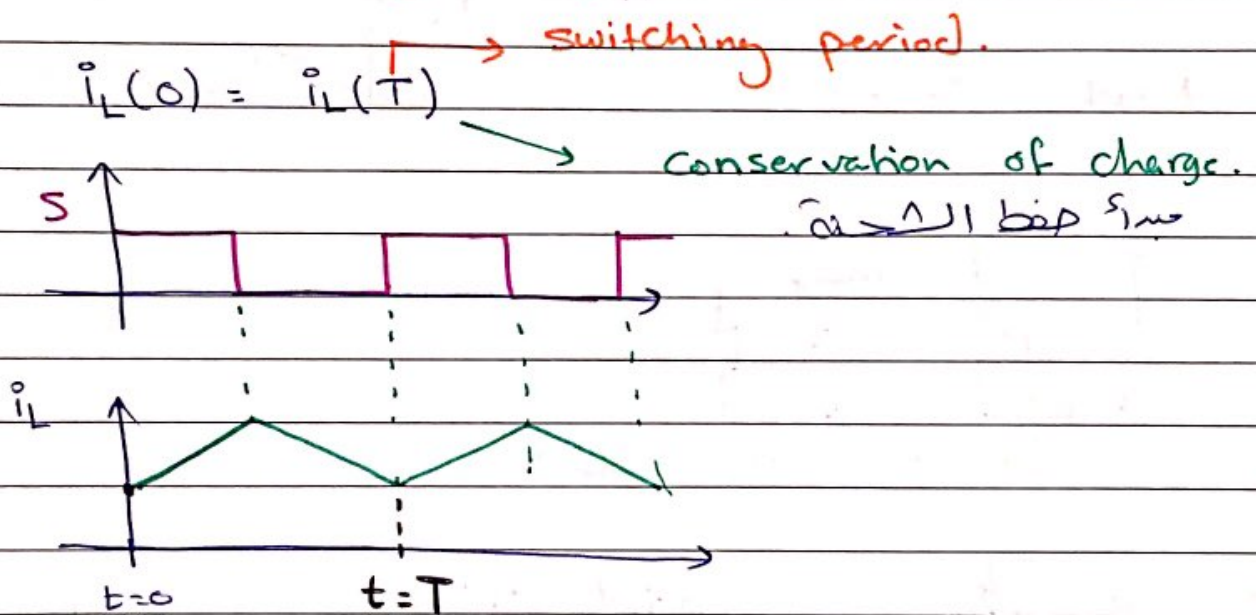 switching period.
i_L(0) = i_L(T)
conservation of charge.
مبدأ حفظ الشحنة.
S
i_L
t=0
t=T